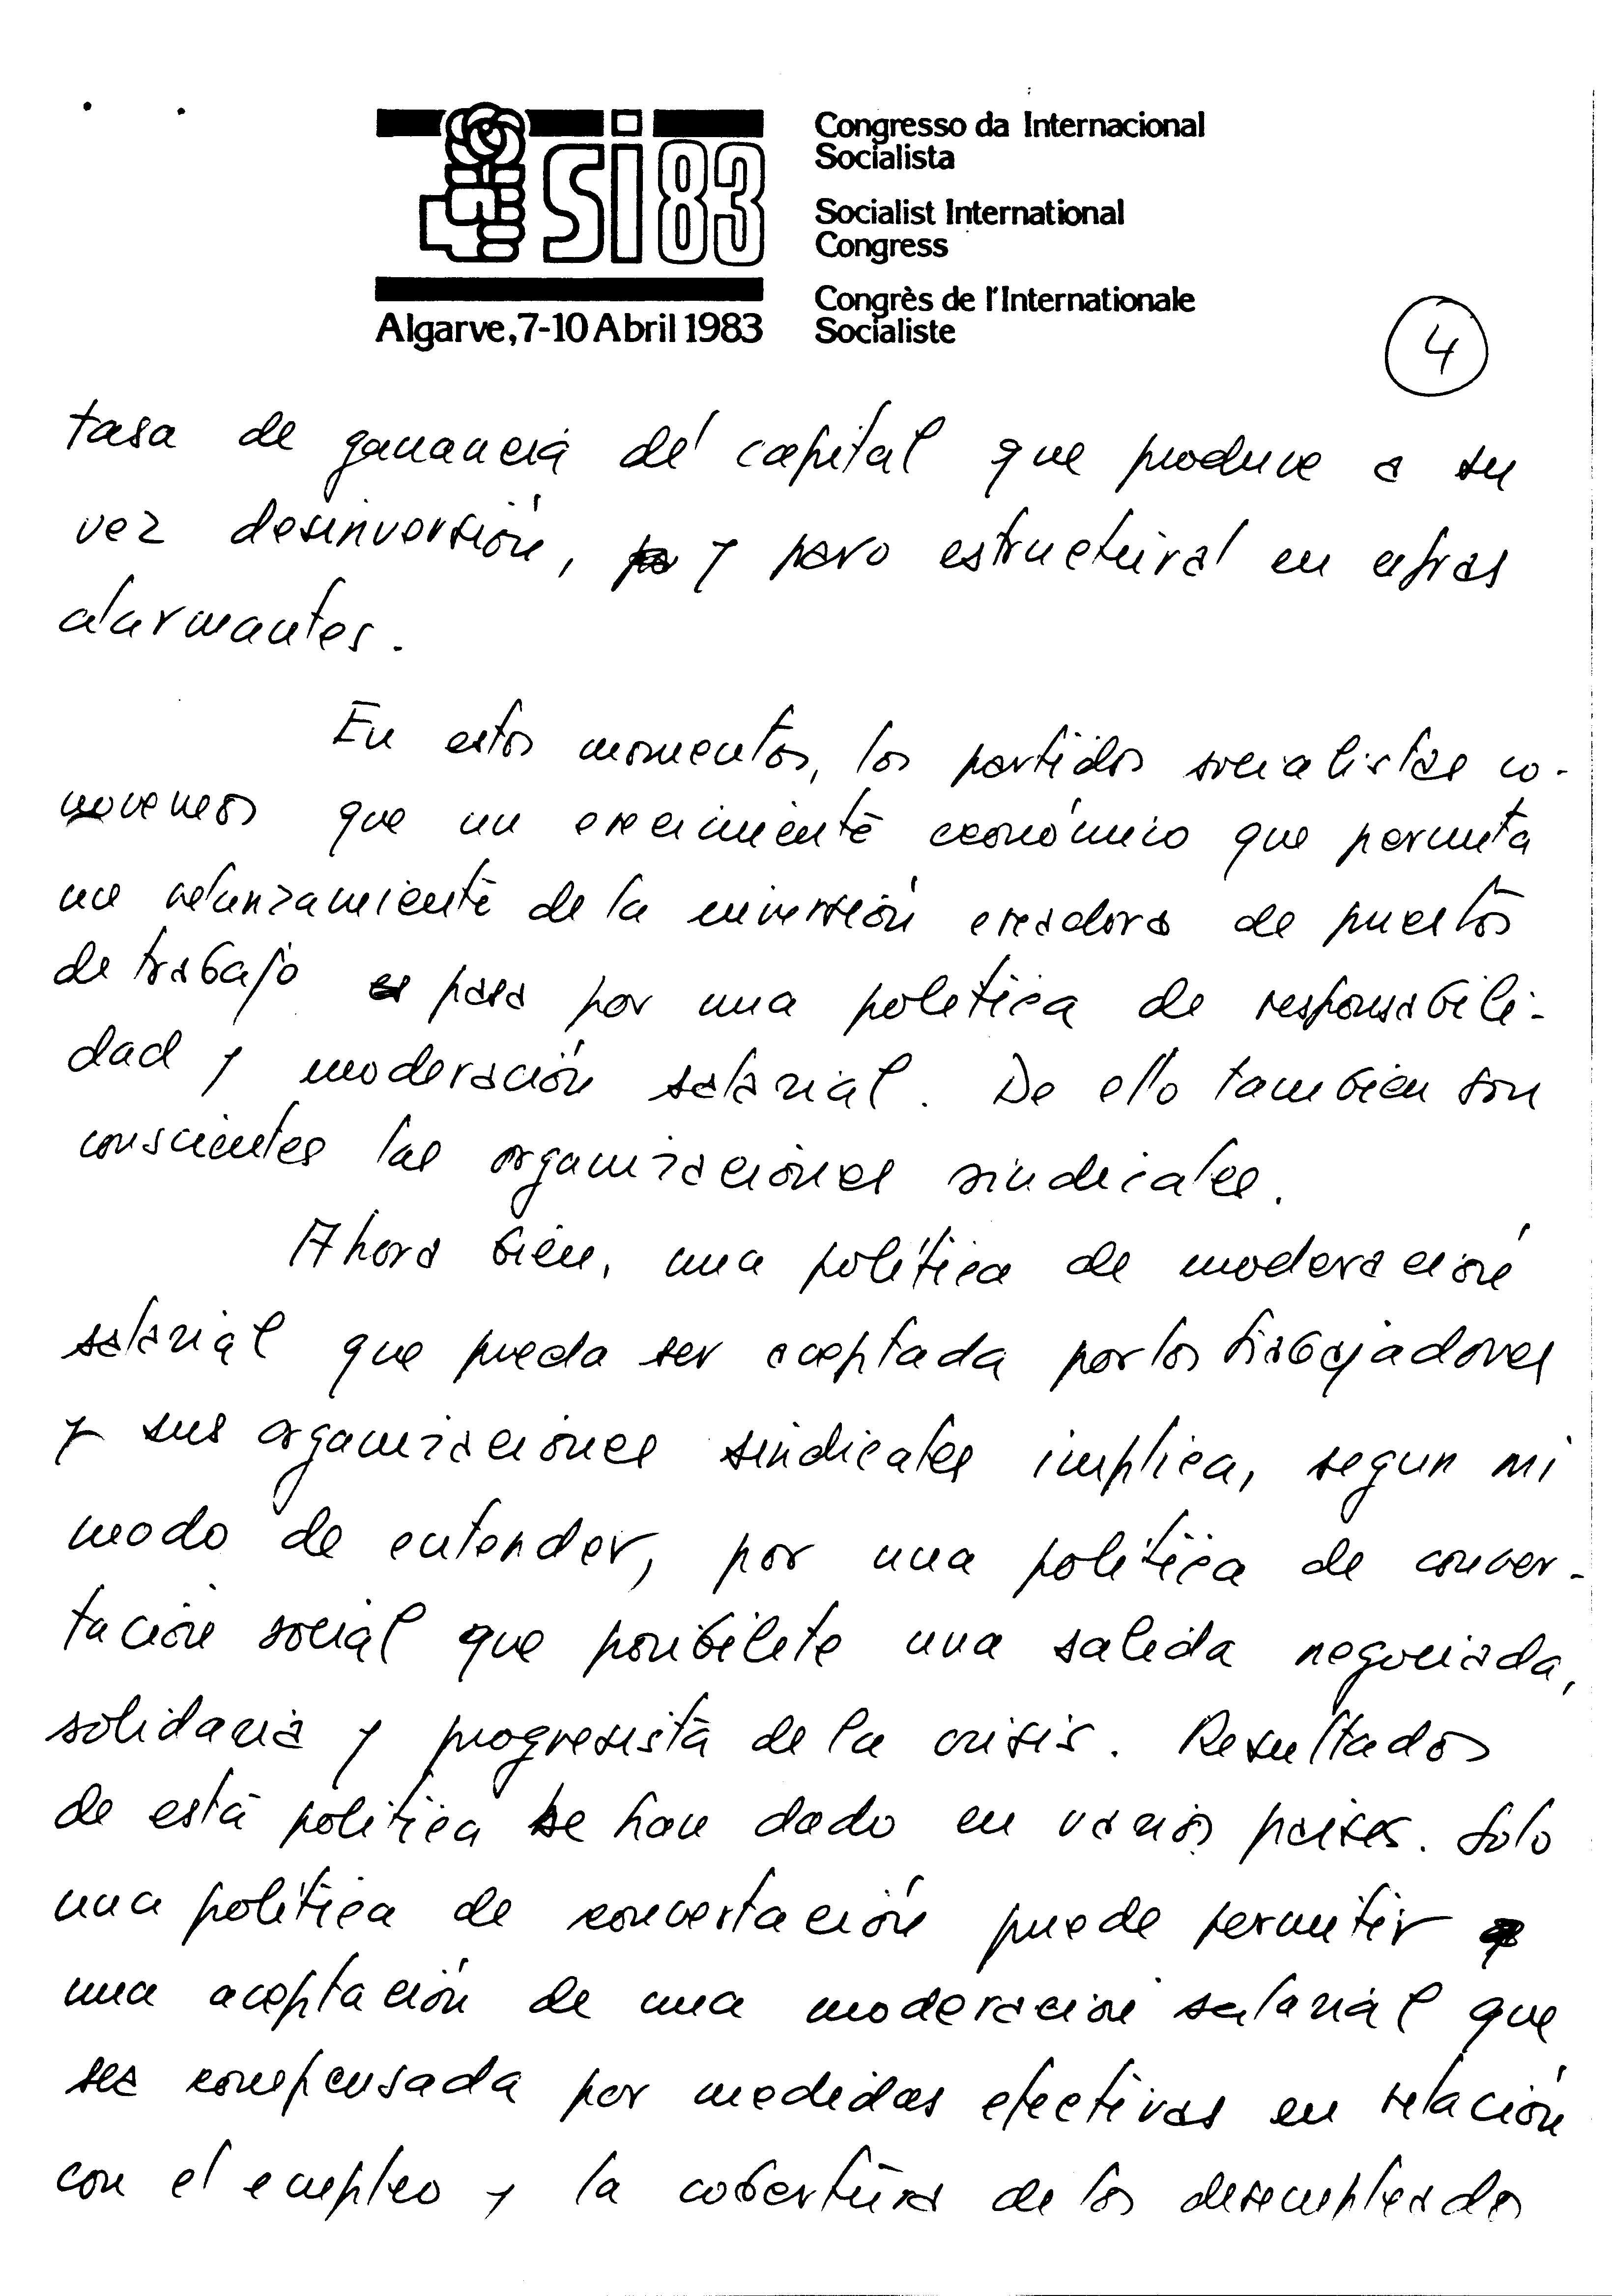 SI 83
Algarve, 7-10 Abril 1983
Congresso da Internacional
Socialista
Socialist International
Congress
Congrès de l'Internationale
Socialiste
4
tasa de ganancia del capital que produce a su
vez desinversión, y paro estructural en cifras
alarmantes.
En estos momentos, los partidos socialistas co-
nocemos que un crecimiento económico que permita
un relanzamiento de la inversión creadora de puestos
de trabajo pasa por una política de responsabili-
dad y moderación salarial. De ello tambien son
conscientes las organizaciones sindicales.
Ahora bien, una política de moderación
salarial que pueda ser aceptada por los trabajadores
y sus organizaciones sindicales implica, segun mi
modo de entender, por una política de concer-
tación social que posibilite una salida negociada,
solidaria y progresista de la crisis. Resultados
de está política se han dado en varios paises. Solo
una política de concertación puede permitir
una aceptación de una moderación salarial que
sea compensada por medidas efectivas en relación
con el empleo y la cobertura de los desempleados